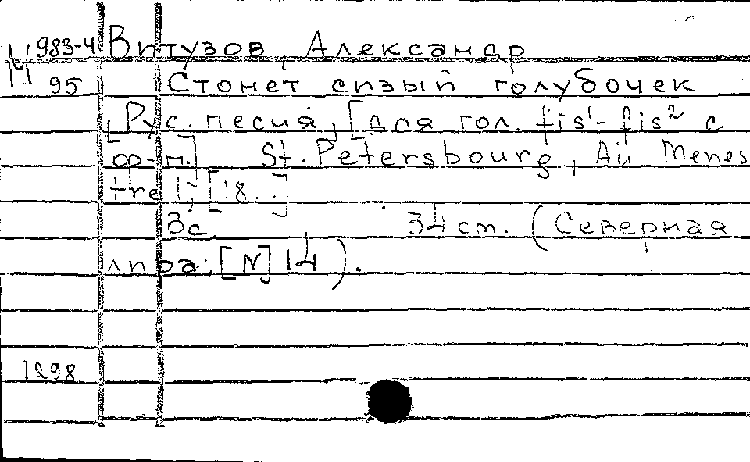 М 983-4 Витузов, Александр
95 Стонет сизый голубочек
[Рус. песня, [для гол. fis¹-fis² с
ф-п.] St. Petersbourg, Au Menes
trel, [18..]
3с. 34 cm. (Северная
лира; [N] 14).
1898